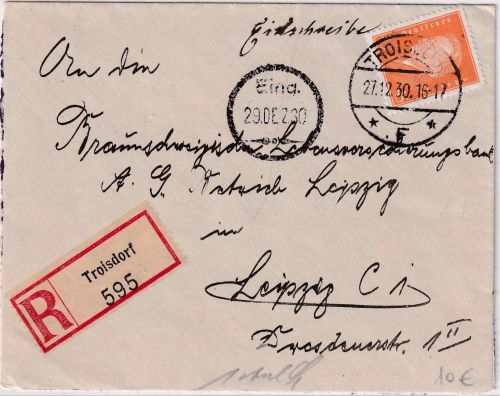 Einschreiben
TROISDORF
27.12.30.16-17
* F *
Eing.
29.DEZ.30
An die
Braunschweigische Lebensversicherungsbank
A. G. Betrieb Leipzig
in
Leipzig C 1
Dresdenerstr. 1 II
R
Troisdorf
595
10 €